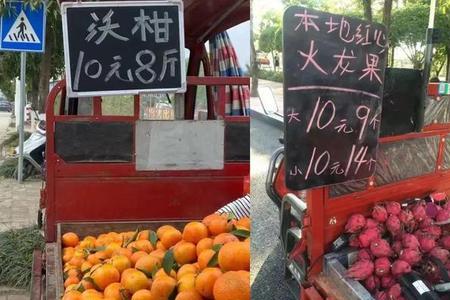 沃柑
10元8斤
本地红心
火龙果
大10元9个
小10元14个